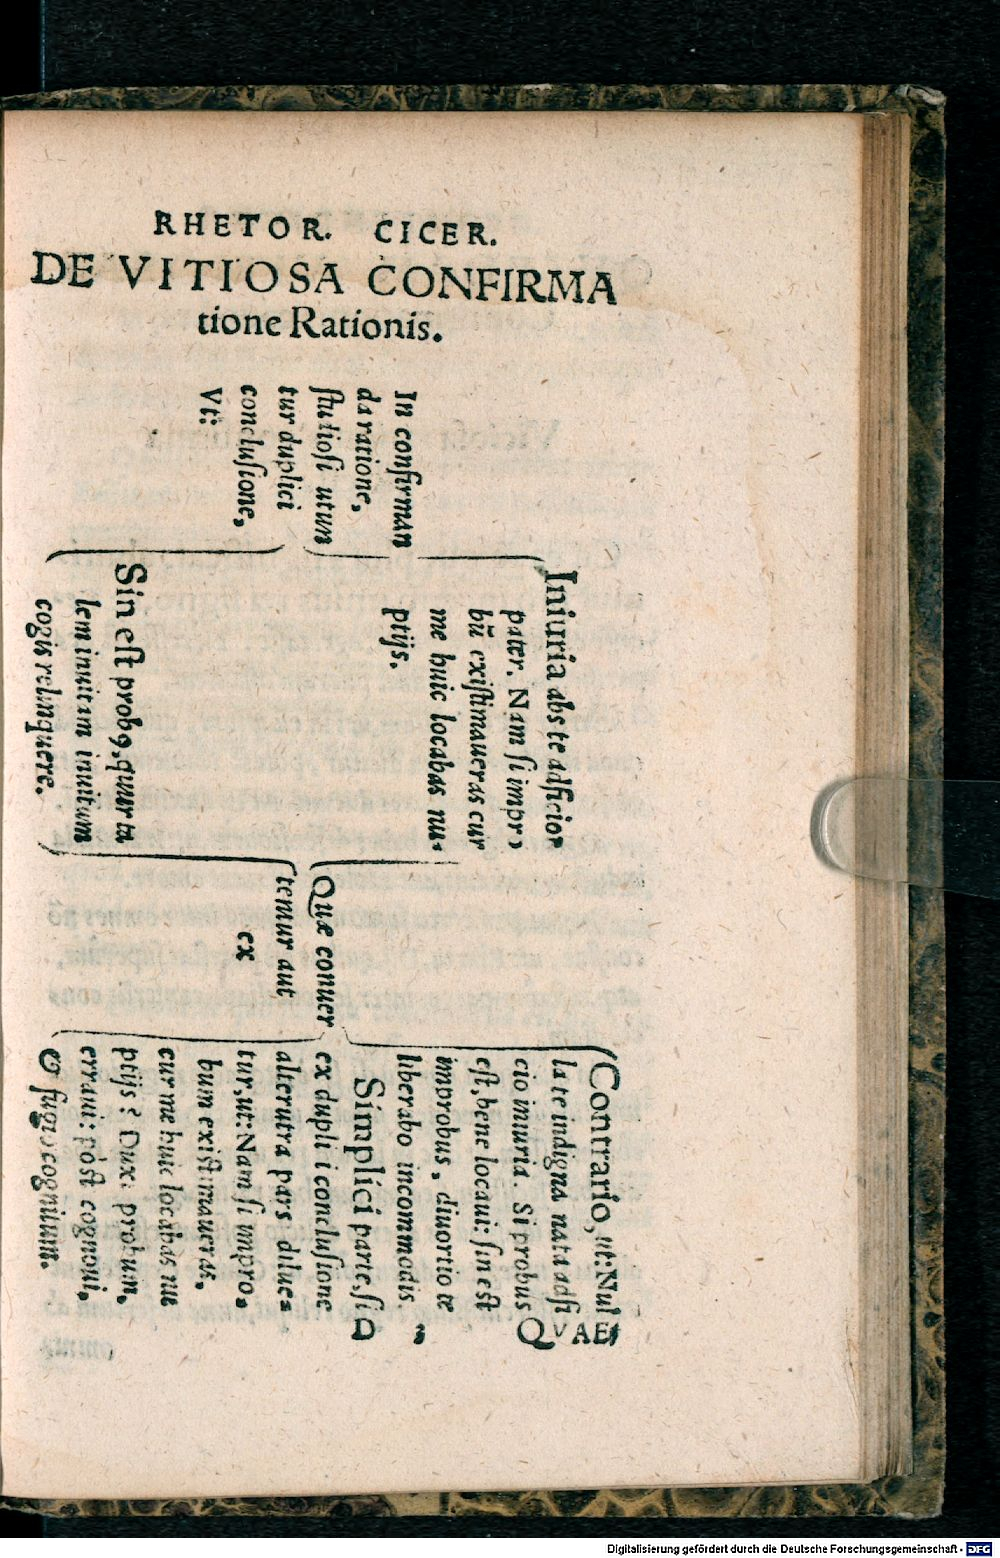 RHETOR. CICER.
DE VITIOSA CONFIRMA
tione Rationis.
In confirman
da ratione,
studiosi utun
tur duplici
conclusione,
Vt:
Iniuria abs te adficior
pater. Nam si impro
bū existimaueras cur
me huic locabas nu-
ptijs.
Sin est probꝰ, quur ta
lem inuitam inuitum
cogis relinquere.
Quæ conuer
tentur aut
ex
Contrario, ut: Nul
la te indigna nata adfi
cio iniuria. Si probus
est, bene locaui: sin est
improbus, diuortio te
liberabo incommodis
Simplici parte, si
ex dupli i conclusione
alterutra pars dilue-
tur, ut: Nam si impro-
bum existimaueras,
cur me huic locabas nu
ptijs? Duxi probum,
erraui: pòst cognoui,
& fugio cognitum.
D 2 QVAE
Digitalisierung gefördert durch die Deutsche Forschungsgemeinschaft - DFG